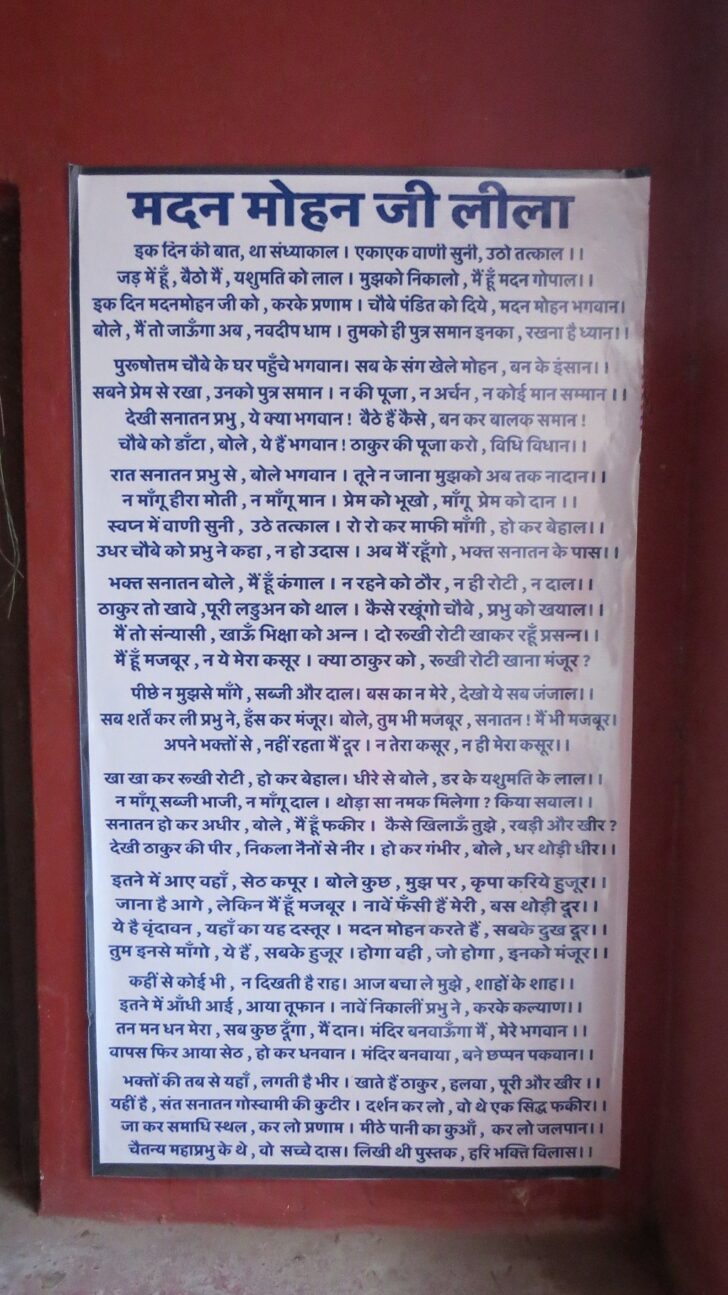 मदन मोहन जी लीला
इक दिन की बात, था संध्याकाल । एकाएक वाणी सुनी, उठो तत्काल ।।
जड़ में हूँ , बैठो मैं , यशुमति को लाल । मुझको निकालो , मैं हूँ मदन गोपाल।।
इक दिन मदनमोहन जी को , करके प्रणाम । चौबे पंडित को दिये , मदन मोहन भगवान।
बोले , मैं तो जाऊँगा अब , नवदीप धाम । तुमको ही पुत्र समान इनका , रखना है ध्यान।।
पुरूषोत्तम चौबे के घर पहुँचे भगवान। सब के संग खेले मोहन , बन के इंसान।।
सबने प्रेम से रखा , उनको पुत्र समान । न की पूजा , न अर्चन , न कोई मान सम्मान ।।
देखी सनातन प्रभु , ये क्या भगवान! बैठे हैं कैसे , बन कर बालक समान !
चौबे को डाँटा , बोले , ये हैं भगवान ! ठाकुर की पूजा करो , विधि विधान।।
रात सनातन प्रभु से , बोले भगवान । तूने न जाना मुझको अब तक नादान।।
न माँगू हीरा मोती , न माँगू मान । प्रेम को भूखो , माँगू प्रेम को दान ।।
स्वप्न में वाणी सुनी , उठे तत्काल । रो रो कर माफी माँगी , हो कर बेहाल।।
उधर चौबे को प्रभु ने कहा , न हो उदास । अब मैं रहूँगो , भक्त सनातन के पास।।
भक्त सनातन बोले , मैं हूँ कंगाल । न रहने को ठौर , न ही रोटी , न दाल।।
ठाकुर तो खावे ,पूरी लडुअन को थाल । कैसे रखूंगो चौबे , प्रभु को खयाल।।
मैं तो संन्यासी , खाऊँ भिक्षा को अन्न । दो रूखी रोटी खाकर रहूँ प्रसन्न।।
मैं हूँ मजबूर , न ये मेरा कसूर । क्या ठाकुर को , रूखी रोटी खाना मंजूर ?
पीछे न मुझसे माँगे , सब्जी और दाल। बस का न मेरे , देखो ये सब जंजाल।।
सब शर्तें कर ली प्रभु ने, हँस कर मंजूर। बोले, तुम भी मजबूर , सनातन ! मैं भी मजबूर।
अपने भक्तों से , नहीं रहता मैं दूर । न तेरा कसूर , न ही मेरा कसूर।।
खा खा कर रूखी रोटी , हो कर बेहाल। धीरे से बोले , डर के यशुमति के लाल।।
न माँगू सब्जी भाजी, न माँगू दाल । थोड़ा सा नमक मिलेगा ? किया सवाल।।
सनातन हो कर अधीर , बोले , मैं हूँ फकीर । कैसे खिलाऊँ तुझे , रबड़ी और खीर ?
देखी ठाकुर की पीर , निकला नैनों से नीर । हो कर गंभीर , बोले , धर थोड़ी धीर।।
इतने में आए वहाँ , सेठ कपूर । बोले कुछ , मुझ पर , कृपा करिये हुजूर।।
जाना है आगे , लेकिन मैं हूँ मजबूर । नावें फँसी हैं मेरी , बस थोड़ी दूर।।
ये है वृंदावन , यहाँ का यह दस्तूर । मदन मोहन करते हैं , सबके दुख दूर।।
तुम इनसे माँगो , ये हैं , सबके हुजूर ।होगा वही , जो होगा , इनको मंजूर।।
कहीं से कोई भी , न दिखती है राह। आज बचा ले मुझे , शाहों के शाह।।
इतने में आँधी आई , आया तूफान । नावें निकालीं प्रभु ने , करके कल्याण।।
तन मन धन मेरा , सब कुछ दूँगा , मैं दान। मंदिर बनवाऊँगा मैं , मेरे भगवान ।।
वापस फिर आया सेठ , हो कर धनवान । मंदिर बनवाया , बने छप्पन पकवान।।
भक्तों की तब से यहाँ , लगती है भीर । खाते हैं ठाकुर , हलवा , पूरी और खीर ।।
यहीं है , संत सनातन गोस्वामी की कुटीर । दर्शन कर लो , वो थे एक सिद्ध फकीर।।
जा कर समाधि स्थल , कर लो प्रणाम । मीठे पानी का कुआँ , कर लो जलपान।।
चैतन्य महाप्रभु के थे , वो सच्चे दास। लिखी थी पुस्तक , हरि भक्ति विलास।।